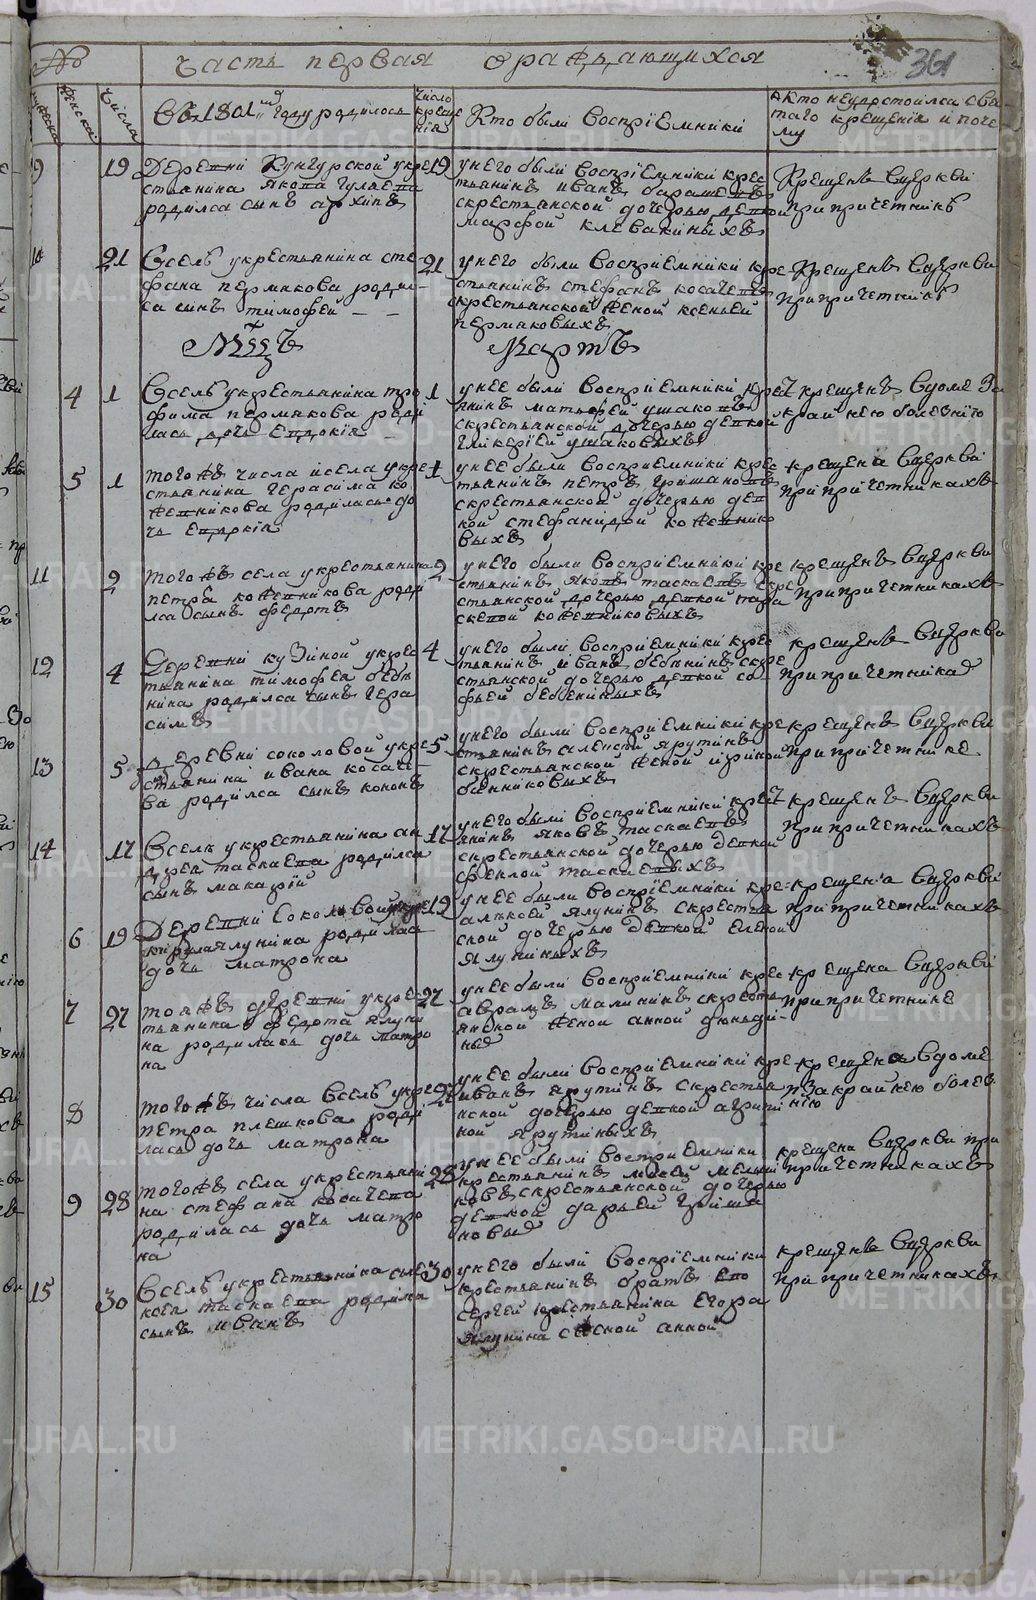 № часть первая ораждающихся
361
мужска
женска
числа
Въ 1801 м году родилось
число
креще
ния
Кто были Воспрiемники
Кто неудостоился свя
таго крещения и поче
му
9 19 Деревни Кунгурской укре
стьянина Якова Гуляева
родился сынъ архипъ
19 унего были Воспрiемники крес
тьянинъ иванъ
скрестьянской дочерью девкой
марфой клевакиныхъ
Крещенъ Вцеркви
при причетникѣ
10 21 Вселѣ укрестьянина сте
фана пермякова роди
ся сынъ тимофей
21 унего были Воспрiемники кре
стьянинъ стефанъ косачевъ
скрестьянской женой ксеньей
пермяковыхъ
Крещенъ Вцеркви
при причетникѣ
Мцъ Мартъ
4 1 Вселѣ укрестьянина тро
фима пермякова роди
лась дочь Евдокiя
1 унее были Воспрiемники крест
янинъ матвей ушаковъ
скрестьянской дочерью девкой
гликерiей ушаковыхъ
крещенъ Вдоме За
крайнею болезнiю
5 1 тогожъ числа исела укре
стьянина герасима ко
жевникова родилась до
чь Евдокiя
1 унее были Воспрiемники крес
тьянинъ петръ гришановъ
скрестьянской дочерью дев
кой стефанидой кожевнико
выхъ
крещена Вцеркви
при причетникахъ
11 2 тогожъ села укрестьянина
петра кожевникова роди
лся сынъ федотъ
2 унего были Воспрiемники кре
стьянинъ яковъ таскаевъ скре
стьянской дочерью девкой пара
скевой кожевниковыхъ
крещенъ Вцеркви
при причетникахъ
12 4 Деревни кузиной укрес
тьянина тимофея бебе
нина родился сынъ гера
симъ
4 унего были Воспрiемники крес
тьянинъ иванъ бебенинъ скре
стьянской дочерью девкой со
фьей бебениныхъ
крещенъ Вцеркви
при причетника
13 5 Деревни соколовой укре
стьянина ивана косаче
ва родился сынъ кононъ
5 унего были Воспрiемники кре
стьянинъ алексей ярутинъ
скрестьянской женой ириной
банниковыхъ
крещенъ Вцеркви
при причетнике
14 17 Вселѣ укрестьянина ан
дрея таскаева родился
сынъ макарiй
17 унего были Воспрiемники крест
янинъ яковъ таскаевъ
скрестьянской дочерью девкой
феклой таскаевыхъ
крещенъ Вцеркви
при причетникахъ
6 19 Деревни Соколовой укре
кирила ялунина родилась
дочь матрона
19 унее были Воспрiемники кре
алексей ялунинъ скрестья
ской дочерью девкой еленой
Ялуниныхъ
крещена Вцеркви
при причетникахъ
7 27 тояжъ деревни укрес
тьянина федота ялуни
на родилась дочь матро
на
27 унее были Воспрiемники крес
аврамъ малининъ скресть
янской женой анной
крещена Вцеркви
при причетнике
8 тогожъ числа Вселѣ укрес
петра плешкова роди
лась дочь матрона
унее были Воспрiемники кре
иванъ ярутинъ скрестья
нской дочерью девкой агрипи
ной ярутиныхъ
крещена Вдоме
Закрайнею болез
нiю
9 28 тогожъ села укрестьяни
на стефана косачева
родилась дочь матро
на
28 унее были Воспрiемники
крестьянинъ мосей мелни
ковъ скрестьянской дочерью
девкой дарьей гриша
новы
крещена Вцеркви при
причетникахъ
15 30 Вселѣ укрестьянина
таскаева родился
сынъ иванъ
30 унего были Воспрiемники
крестьянинъ братъ Ево
сергей крестьянина Егора
ялунина сженой анной
крещенъ Вцеркви
при причетникахъ
METRIKI.GASO-URAL.RU